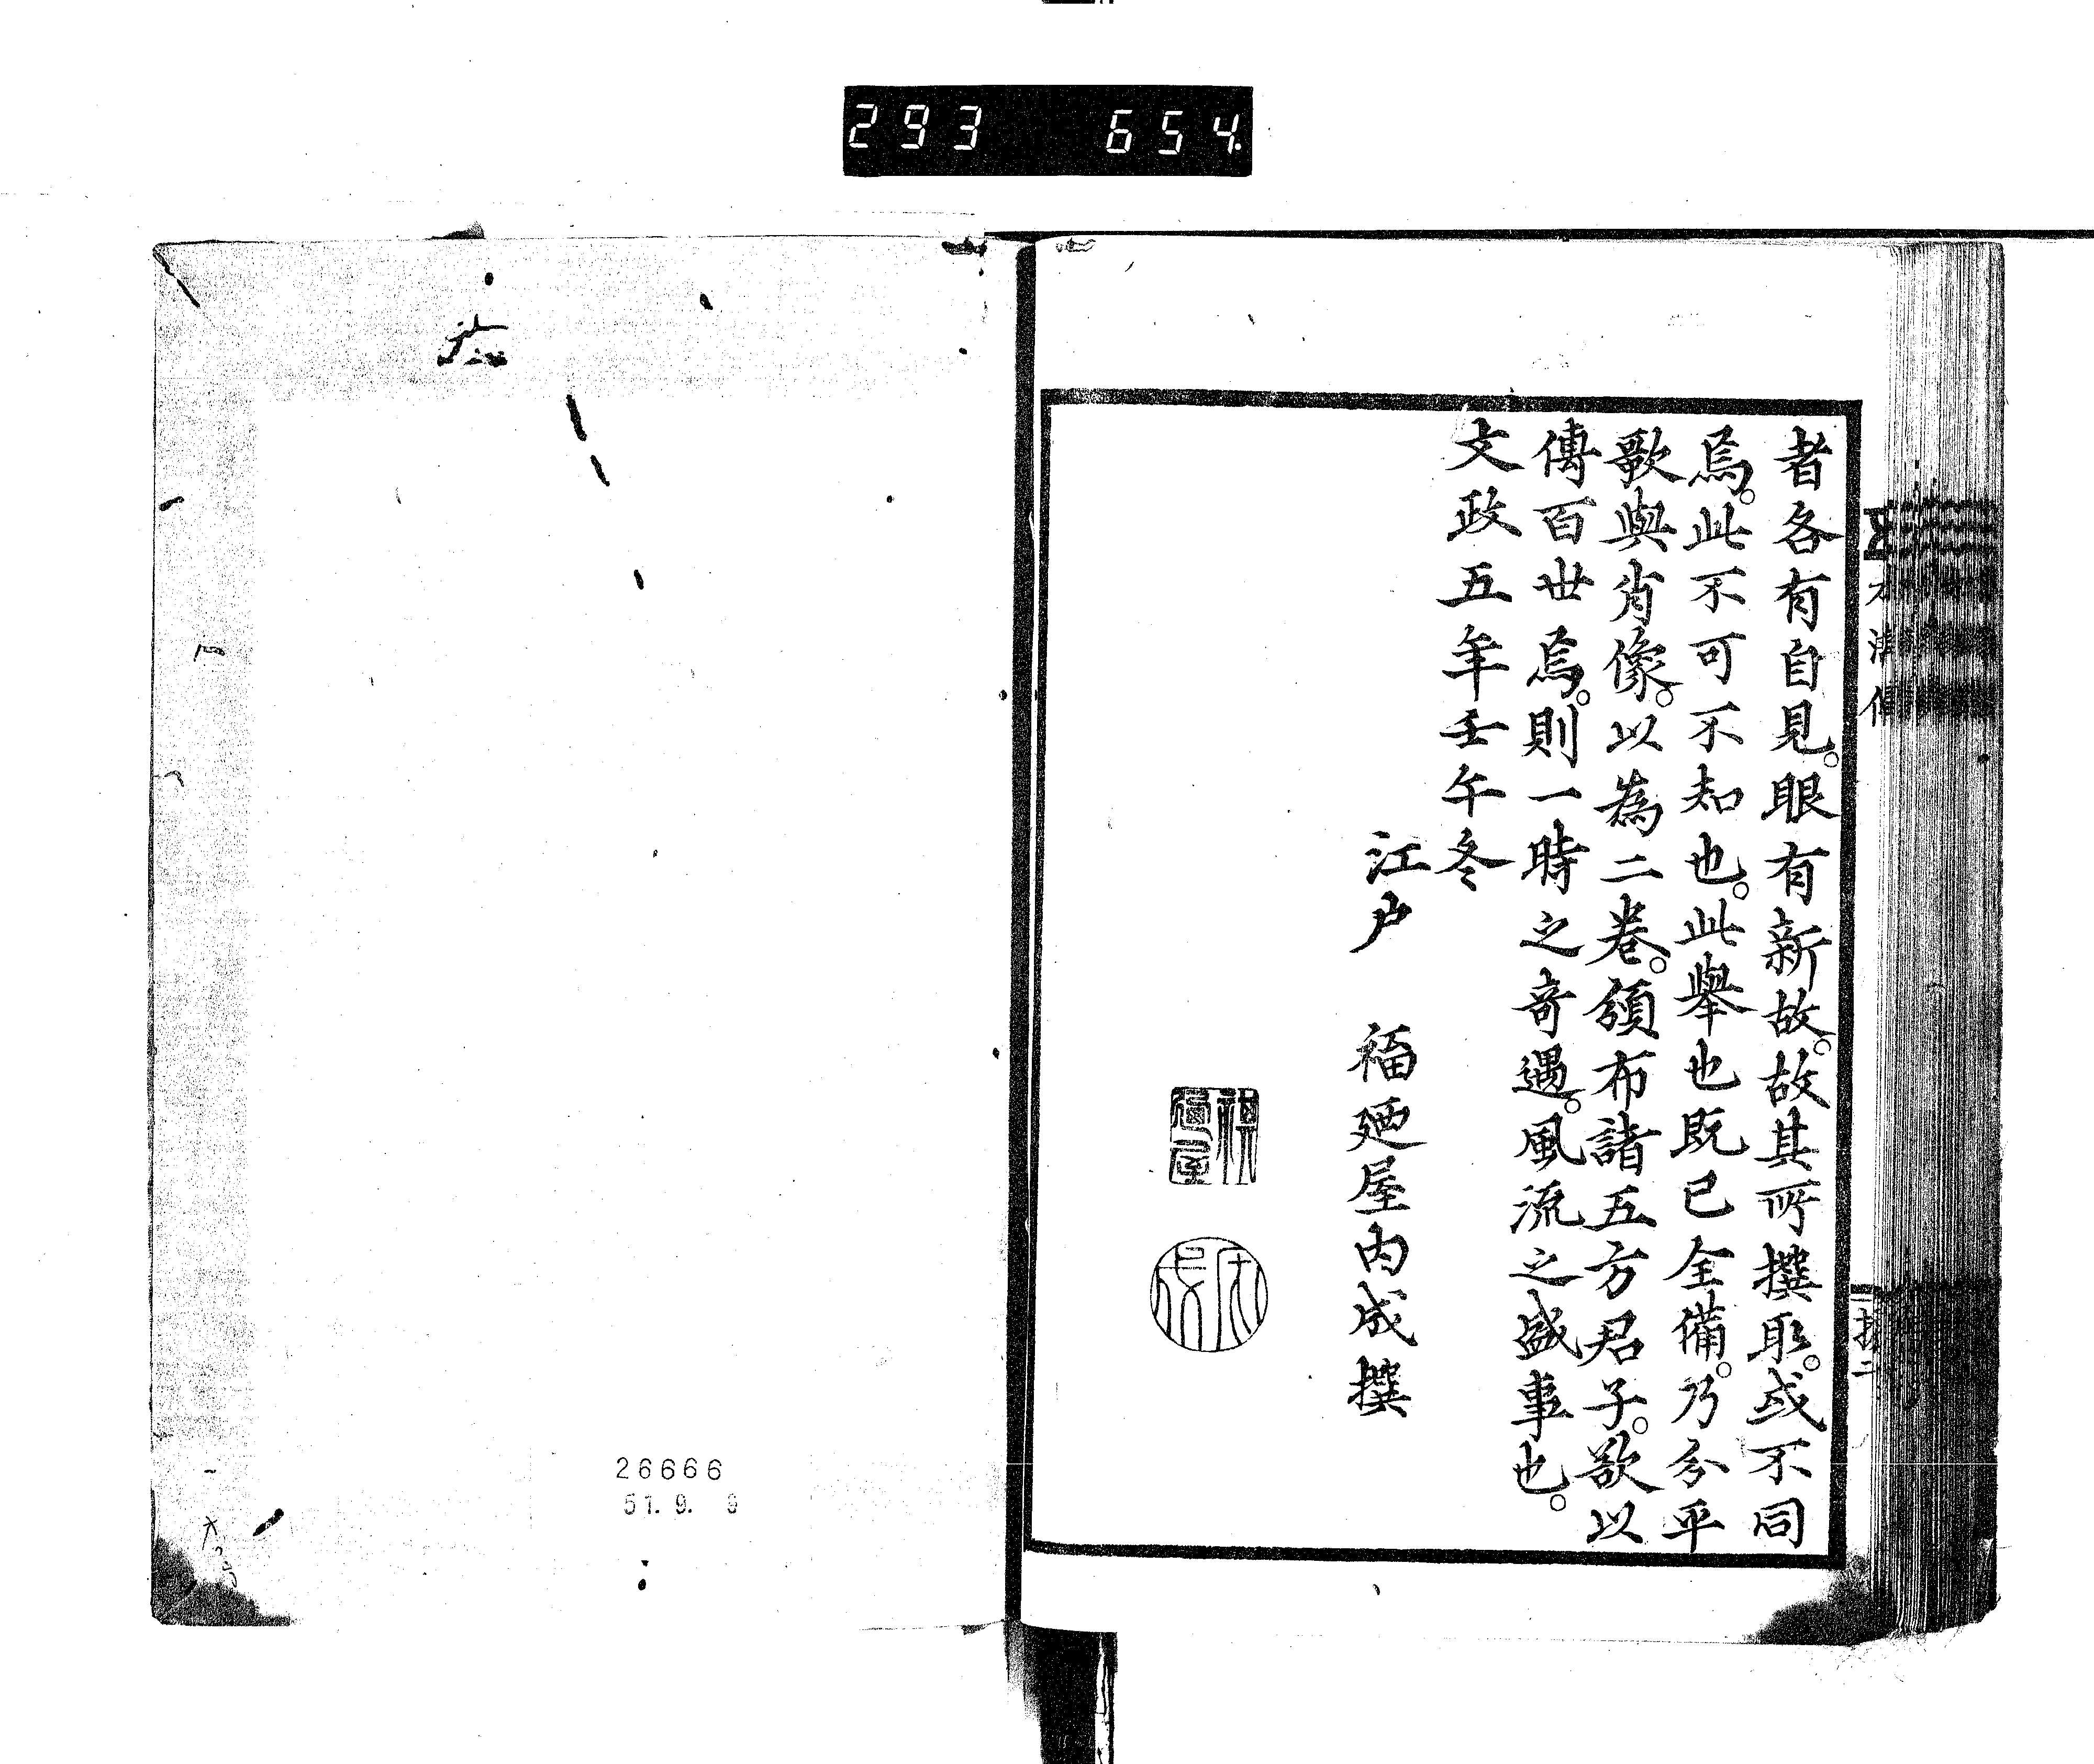 293 654
者各有自見。眼有新故。故其所撰取。或不同
焉。此不可不知也。此舉也既已全備。乃分平
歌與肖像。以為二卷。頒布諸五方君子。欲以
傳百世焉。則一時之奇遇。風流之盛事也。
文政五年壬午冬
江戶 福廼屋內成撰
福廼屋
內成
26666
51. 9. 9